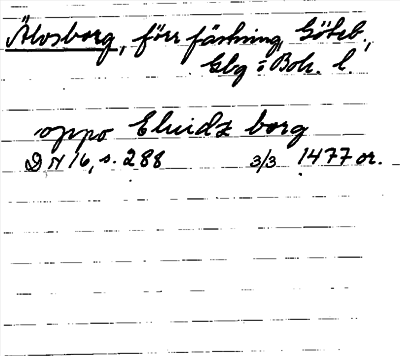 Älvsborg, förr fästning, Göteb.,
Gbg o Boh. l.
oppo Elwidz borg
DN 16, s. 288 3/3 1477 or.